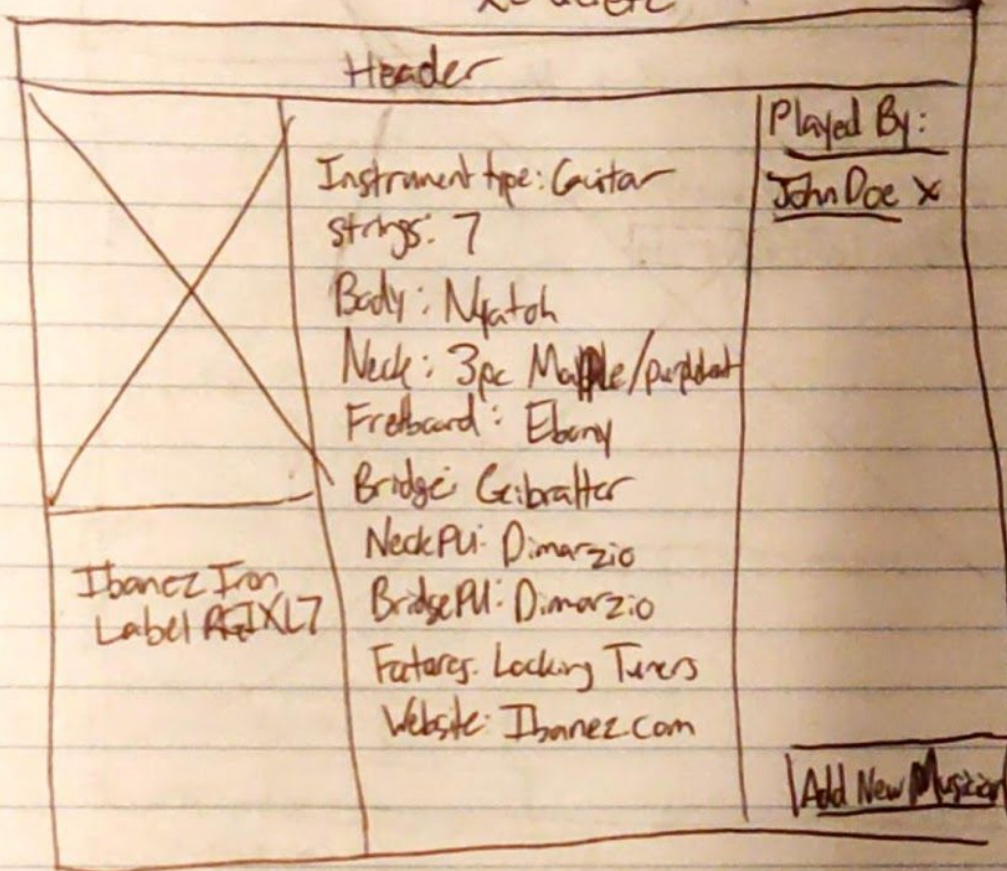 Header
Ibanez Iron
Label RGIXL7
Instrument type: Guitar
strings: 7
Body: Nyatoh
Neck: 3pc Maple/purpleheart
Fretboard: Ebony
Bridge: Gibralter
Neck PU: Dimarzio
Bridge PU: Dimarzio
Fatures: Locking Tuners
Website: Ibanez.com
Played By:
John Doe x
Add New Musician